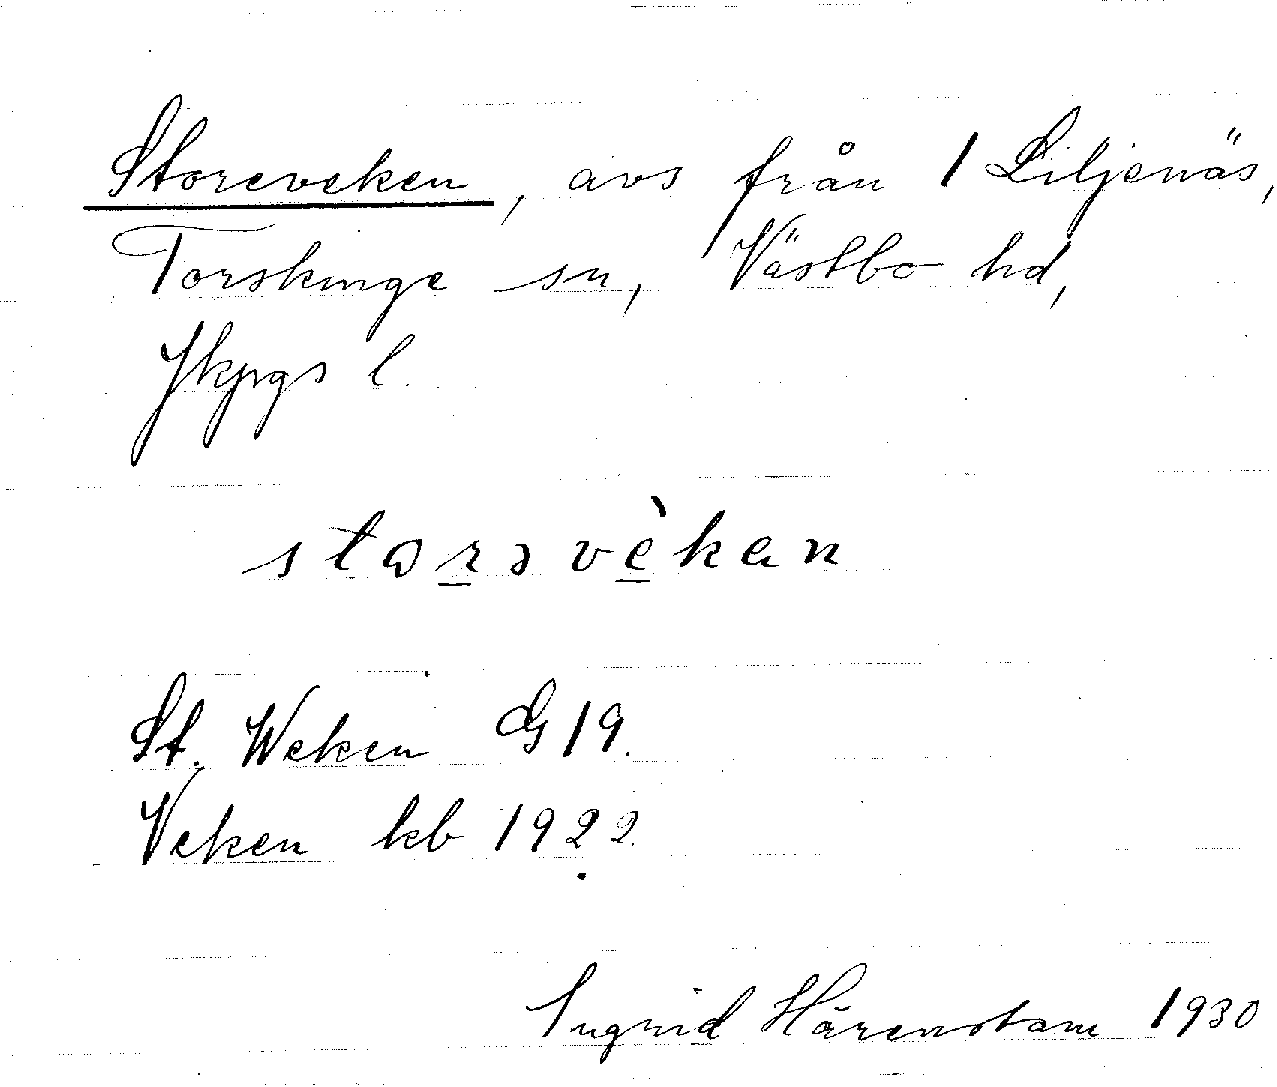 Storeveken, avs från 1 Liljenäs,
Torskinge sn, Västbo hd,
Jkpgs l.
storəvèkan
St. Weken G 19.
Veken kb 1922.
Ingrid Härenstam 1930